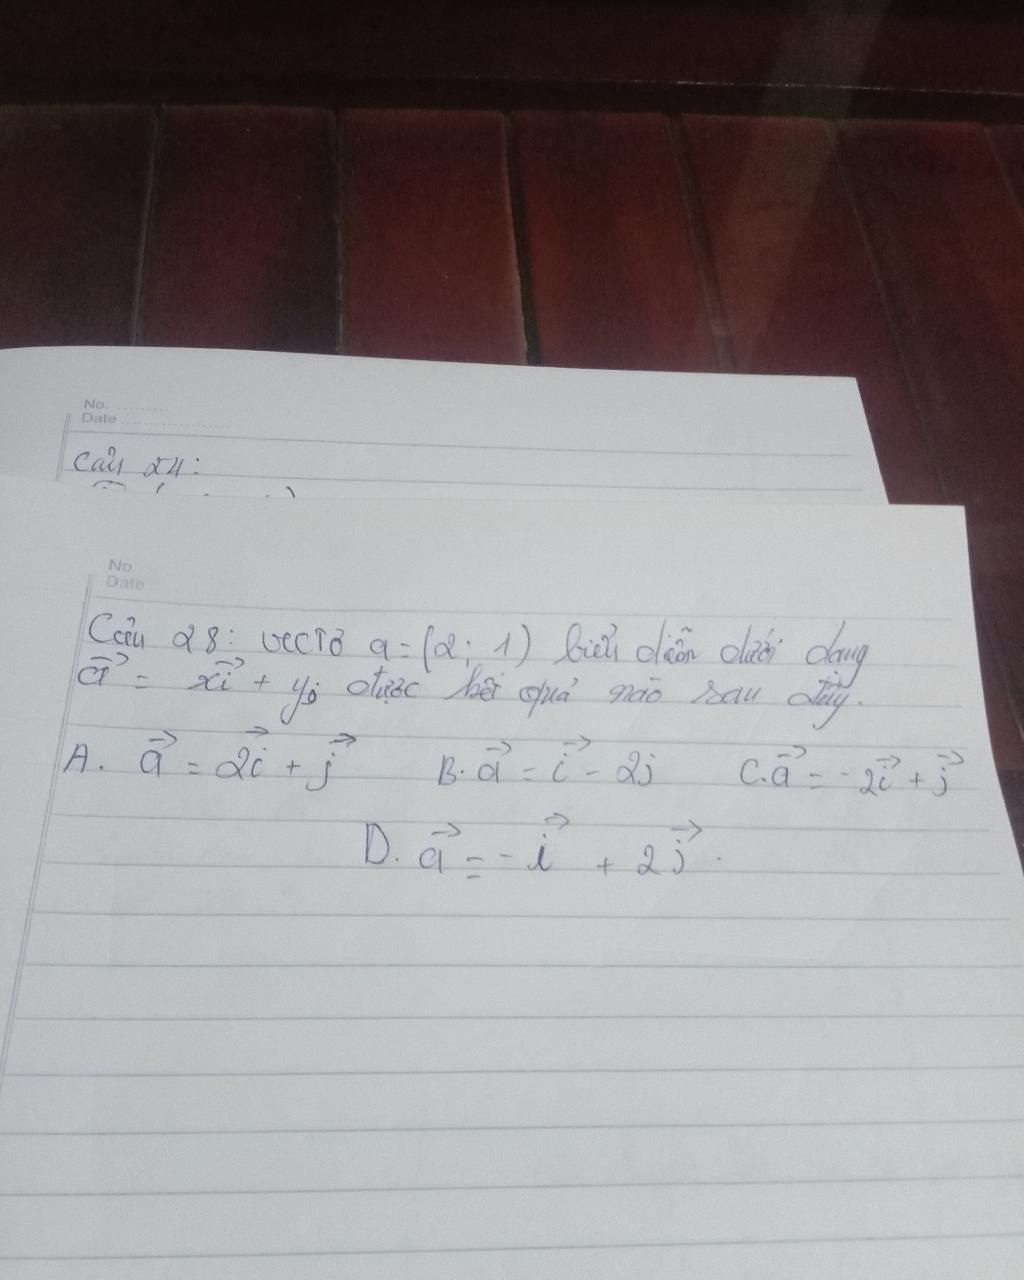 No.
Date
Câu 24:
No.
Date
Câu 28: vectơ a = (2; 1) biểu diễn dưới dạng
a⃗ = xi⃗ + yj được kết quả nào sau đây.
A. a⃗ = 2i⃗ + j⃗ B. a⃗ = i⃗ - 2j C. a⃗ = -2i⃗ + j⃗
D. a⃗ = - i⃗ + 2j⃗.